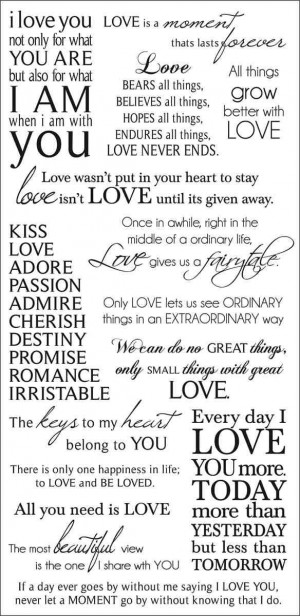 i love you
not only for what
YOU ARE
but also for what
I AM
when i am with
you
LOVE is a moment,
thats lasts forever
Love
BEARS all things,
BELIEVES all things,
HOPES all things,
ENDURES all things,
LOVE NEVER ENDS.
All things
grow
better with
LOVE
Love wasn't put in your heart to stay
love isn't LOVE until its given away.
Once in awhile, right in the
middle of a ordinary life,
Love gives us a fairytale.
KISS
LOVE
ADORE
PASSION
ADMIRE
CHERISH
DESTINY
PROMISE
ROMANCE
IRRISTABLE
Only LOVE lets us see ORDINARY
things in an EXTRAORDINARY way
We can do no GREAT things,
only SMALL things with great
LOVE.
The keys to my heart
belong to YOU
There is only one happiness in life;
to LOVE and BE LOVED.
All you need is LOVE
The most beautiful view
is the one I share wth YOU
Every day I
LOVE
YOU more.
TODAY
more than
YESTERDAY
but less than
TOMORROW
If a day ever goes by without me saying I LOVE YOU,
never let a MOMENT go by without knowing that I do.